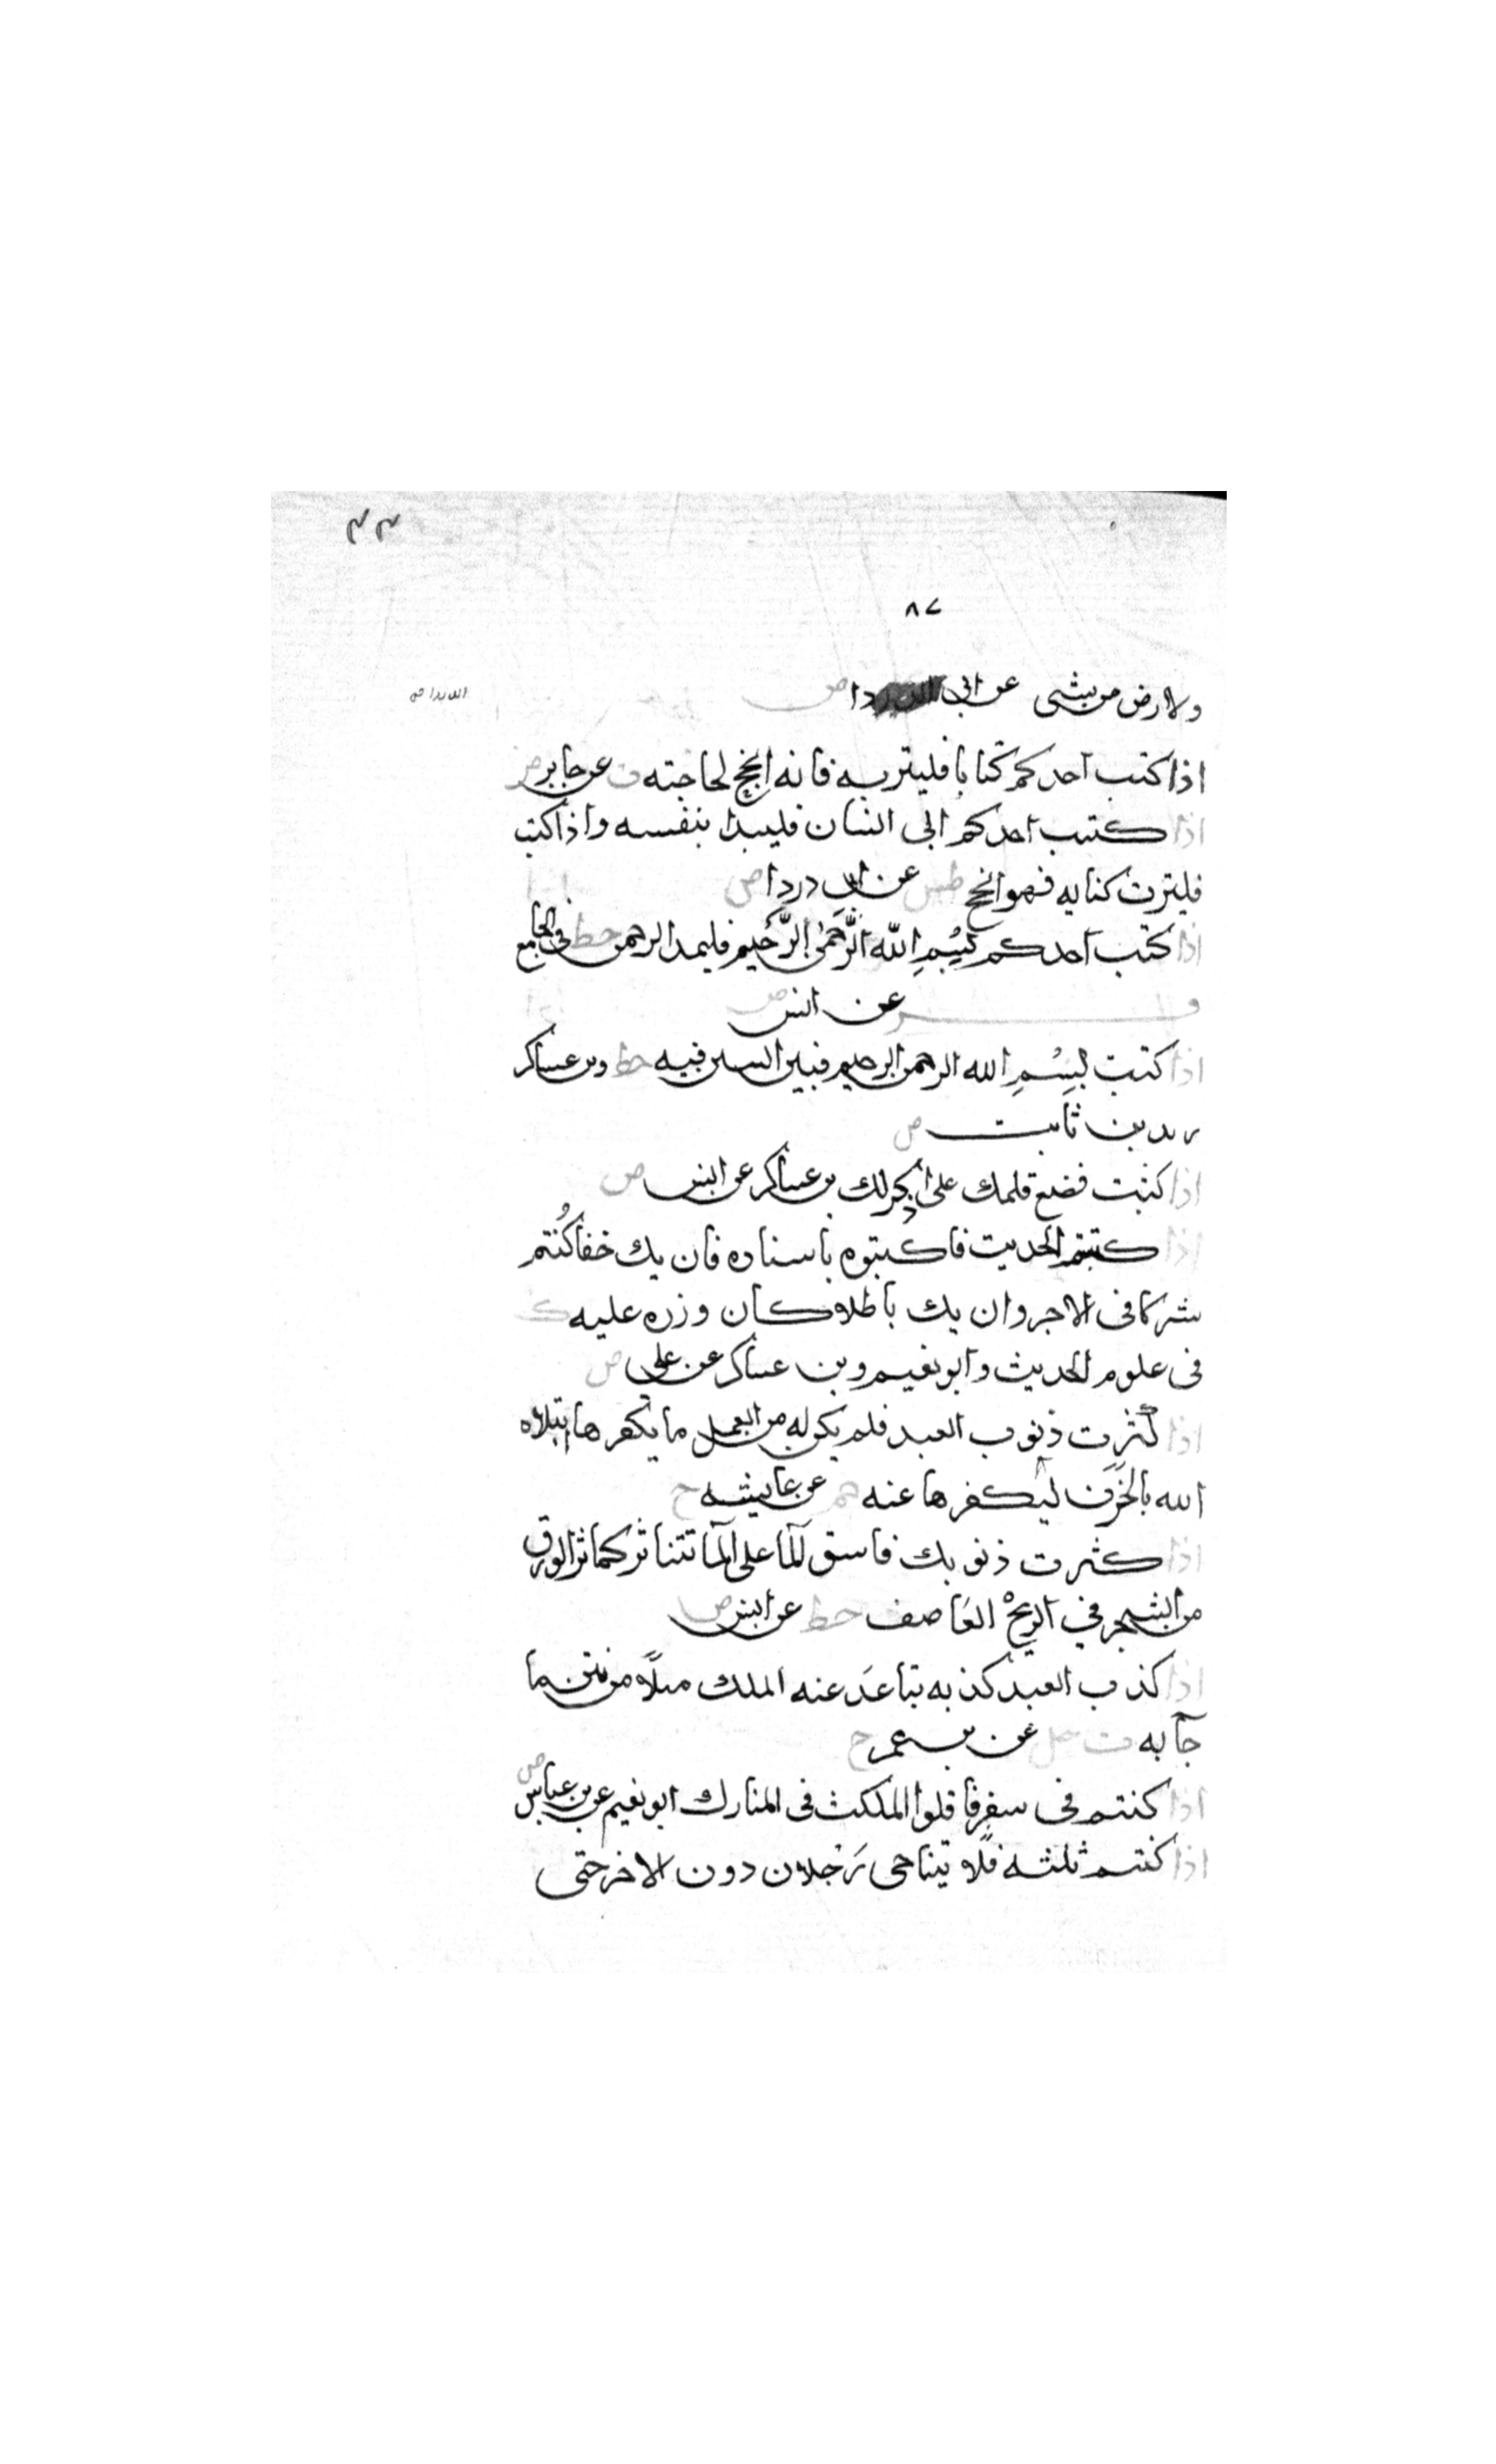 ٤٣
٨٧
ولارض من شى عن ابى الدردا ص
الدردا ص
اذا كتب احدكم كتابا فليتربه فانه انجح لحاجته ت عن جابر ض
اذا كتب احدكم الى انسان فليبدا بنفسه واذا كتب
فليترب كتابه فهو انجح طس عن ابى دردا ض
اذا كتب احدكم بِسْمِ اللّه الرَّحَمٰن الرَّحيم فليمد الرحمن خط فى الجامع
فر عن انس ض
اذا كتبت بِسْمِ الله الرحمن الرحيم فبين السين فيه خط وبن عساكر
زيد بن ثابت ض
اذا كتبت فضع قلمك على اذنك فانه اذكر لك بن عساكر عن انس ض
اذا كتبتم الحديث فاكتبوه باسناده فان يك حقا كُنتم
شركا فى الاجر وان يك باطلا كان وزره عليه ك
فى علوم الحديث وابو نعيم وبن عساكر عن على ض
اذا كثرت ذنوب العبد فلم يكن له من العمل ما يكفرها ابتلاه
الله بالحَزَن ليكفرها عنه حم عن عايشه ح
اذا كثرت ذنوبك فاسق المآ على المآ تتناثر كما تناثر الورق
من الشجر في الريحْ العَاصف خط عن انس ض
اذا كذب العبد كذبه تباعَد عنه الملك ميلًا من نتن ما
جآ به ت حل عن بن عمر ح
اذا كنتم فى سفر فاقلوا المكث فى المنازل ابو نعيم عن بن عباس ض
اذا كنتم ثلثه فلا يتناجى رَجلان دون الاخر حتى